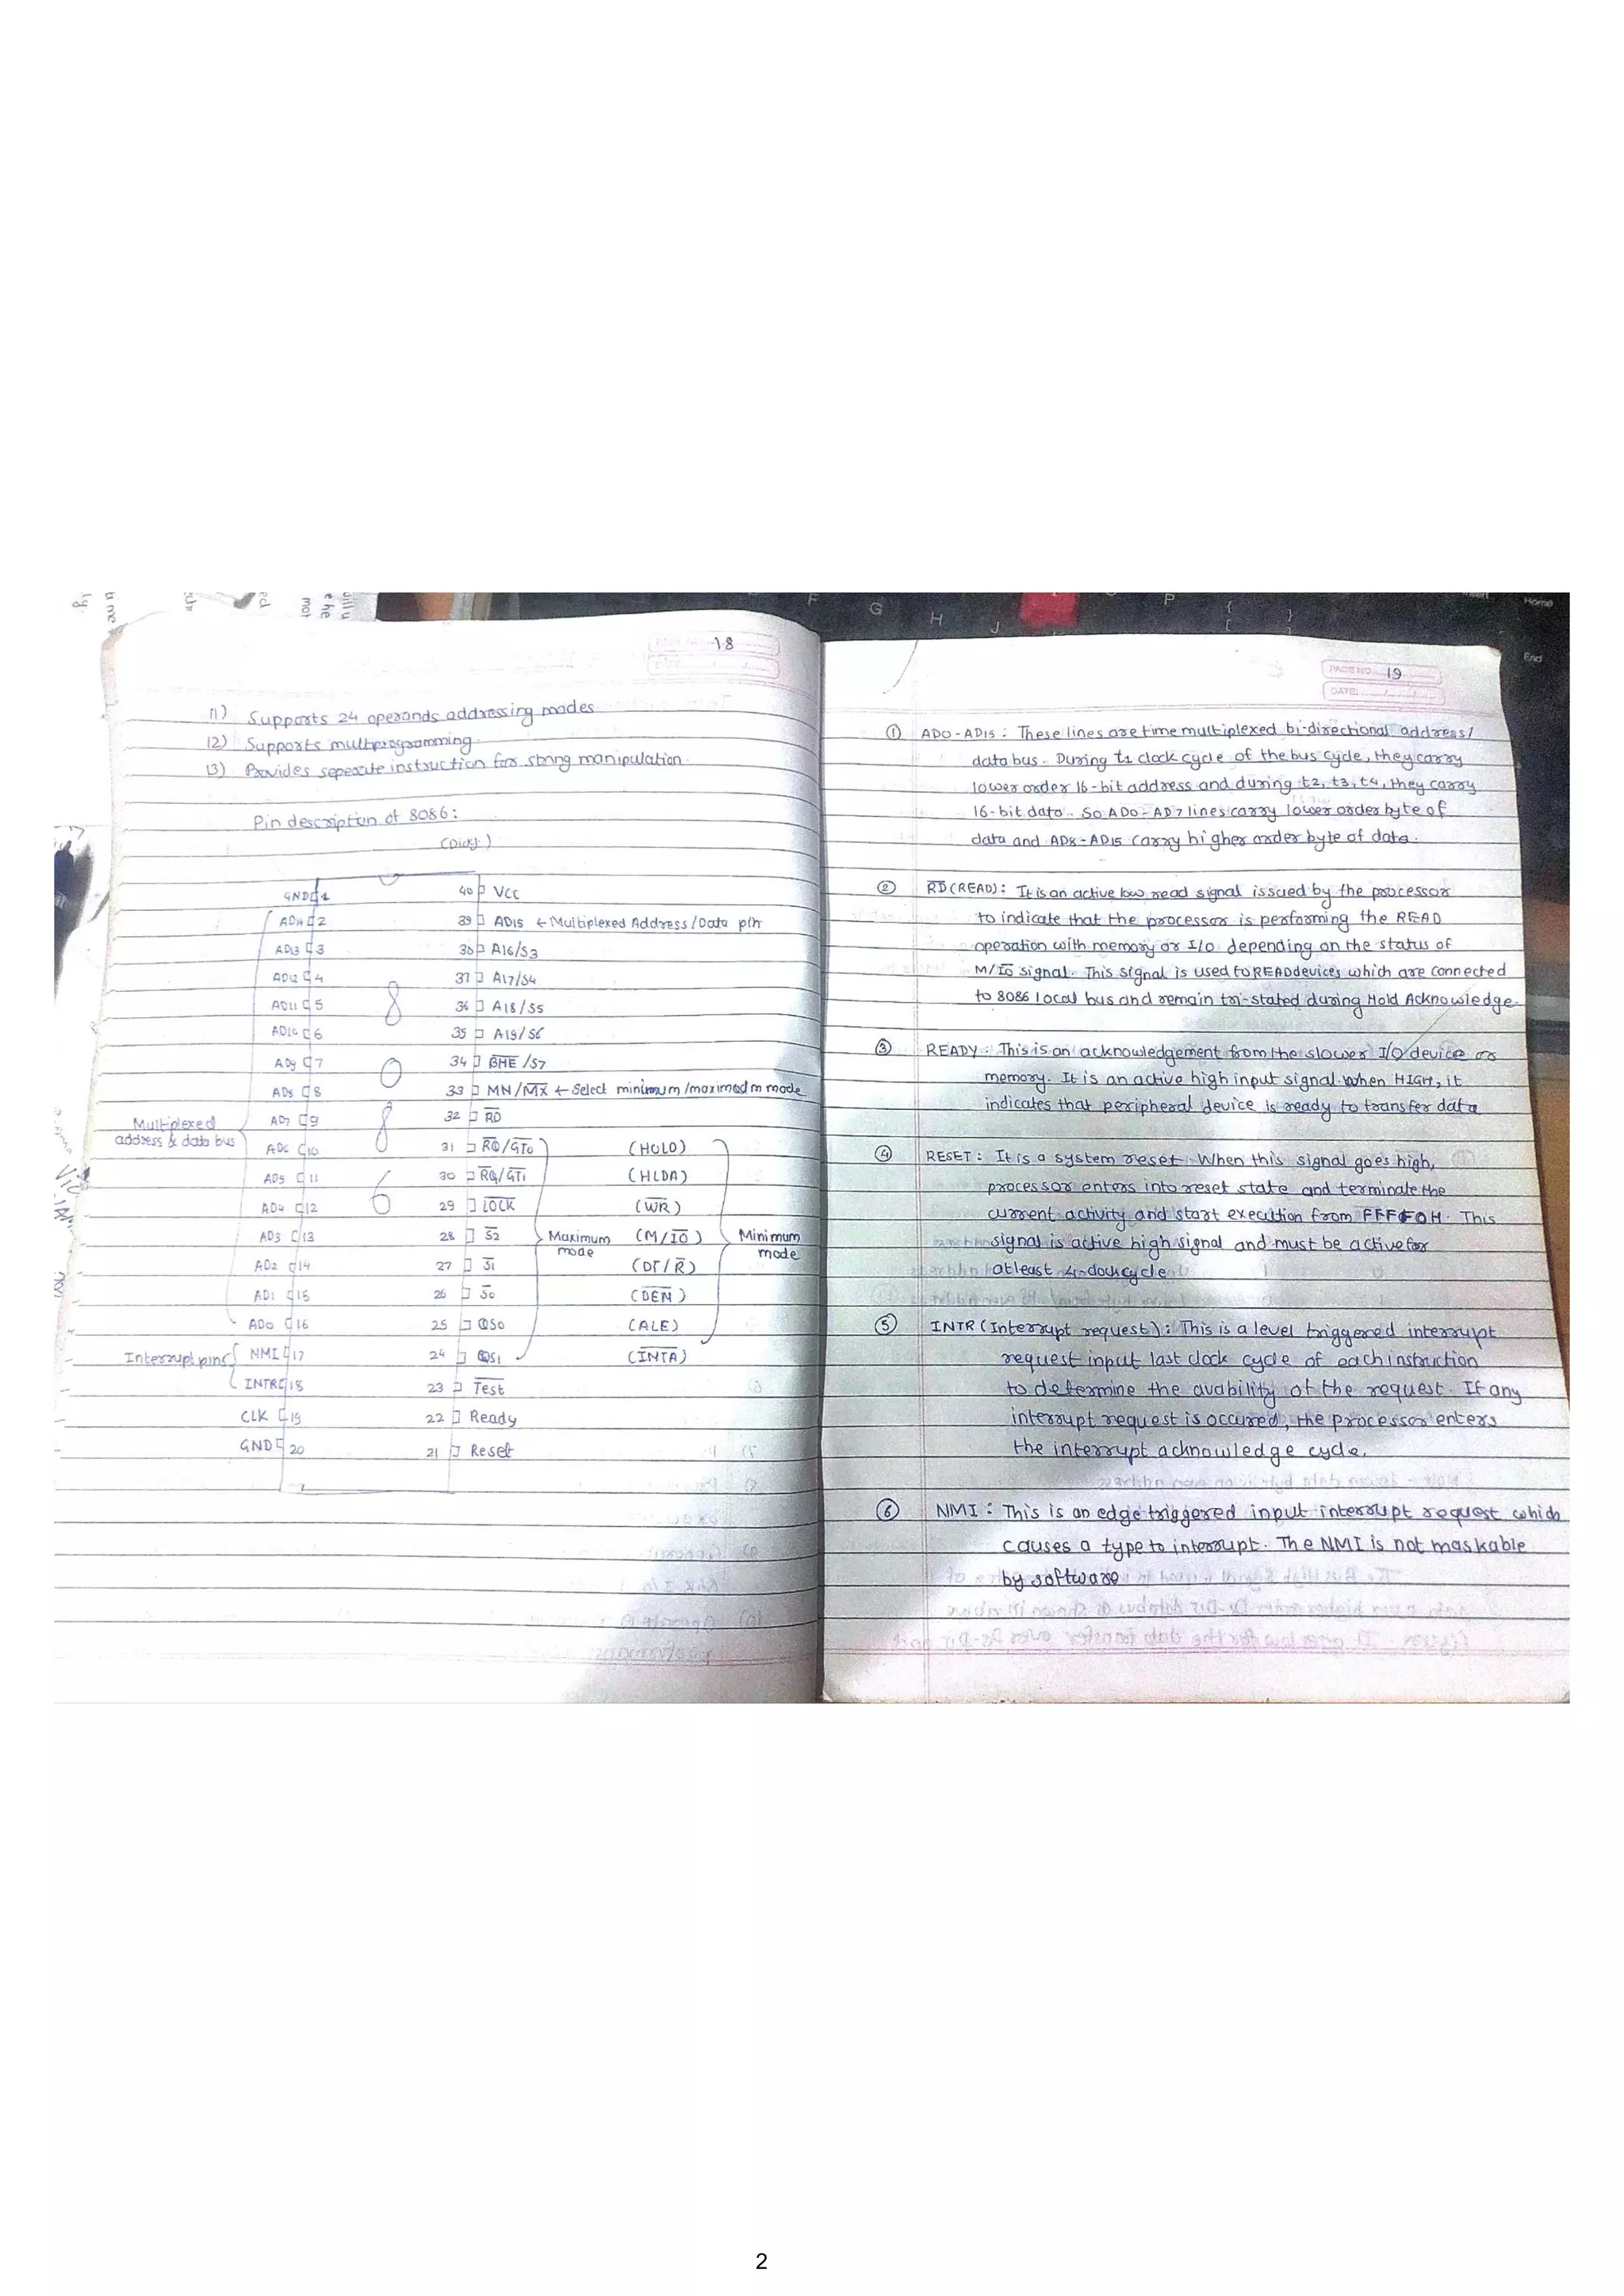 18
11) Supports 24 operands addressing modes
12) Supports multiprogramming
13) Provides seperate instruction for string manipulation.
Pin description of 8086:
(Diag.)
GND 1 40 VCC
AD14 2 39 AD15 ← Multiplexed Address/Data pin
AD13 3 38 A16/S3
AD12 4 37 A17/S4
AD11 5 36 A18/S5
AD10 6 35 A19/S6
AD9 7 34 B̅H̅E̅/S7
AD8 8 33 MN/M̅X̅ ← Select minimum/maximum mode
Multiplexed address & data bus
AD7 9 32 R̅D̅
AD6 10 31 R̅Q̅/G̅T̅0 (HOLD)
AD5 11 30 R̅Q̅/G̅T̅1 (HLDA)
AD4 12 29 L̅O̅C̅K̅ (W̅R̅)
AD3 13 28 S̅2 Maximum mode (M/I̅O̅) Minimum mode
AD2 14 27 S̅1 (DT/R̅)
AD1 15 26 S̅0 (D̅E̅N̅)
AD0 16 25 QS0 (ALE)
Interrupt pins NMI 17 24 QS1 (I̅N̅T̅A̅)
INTR 18 23 T̅e̅s̅t̅
CLK 19 22 Ready
GND 20 21 Reset
8
0
8
6
PAGE NO. 19
DATE
① AD0-AD15: These lines are time multiplexed bi-directional address/
data bus. During t1 clock cycle of the bus cycle, they carry
lower order 16-bit address and during t2, t3, t4, they carry
16-bit data. So AD0-AD7 lines carry lower order byte of
data and AD8-AD15 carry higher order byte of data.
② R̅D̅ (READ): It is an active low read signal issued by the processor
to indicate that the processor is performing the READ
operation with memory or I/O depending on the status of
M/I̅O̅ signal. This signal is used to READ devices which are connected
to 8086 local bus and remain tri-stated during Hold Acknowledge.
③ READY: This is an acknowledgement from the slower I/O device or
memory. It is an active high input signal. When HIGH, it
indicates that peripheral device is ready to transfer data
④ RESET: It is a system reset. When this signal goes high,
processor enters into reset state and terminate the
current activity and start execution from FFFF0H. This
signal is active high signal and must be active for
atleast 4-clock cycle
⑤ INTR (Interrupt request): This is a level triggered interrupt
request input last clock cycle of each instruction
to determine the avability of the request. If any
interrupt request is occured, the processor enters
the interrupt acknowledge cycle.
⑥ NMI: This is an edge triggered input interrupt request which
causes a type to interrupt. The NMI is not maskable
by software
2